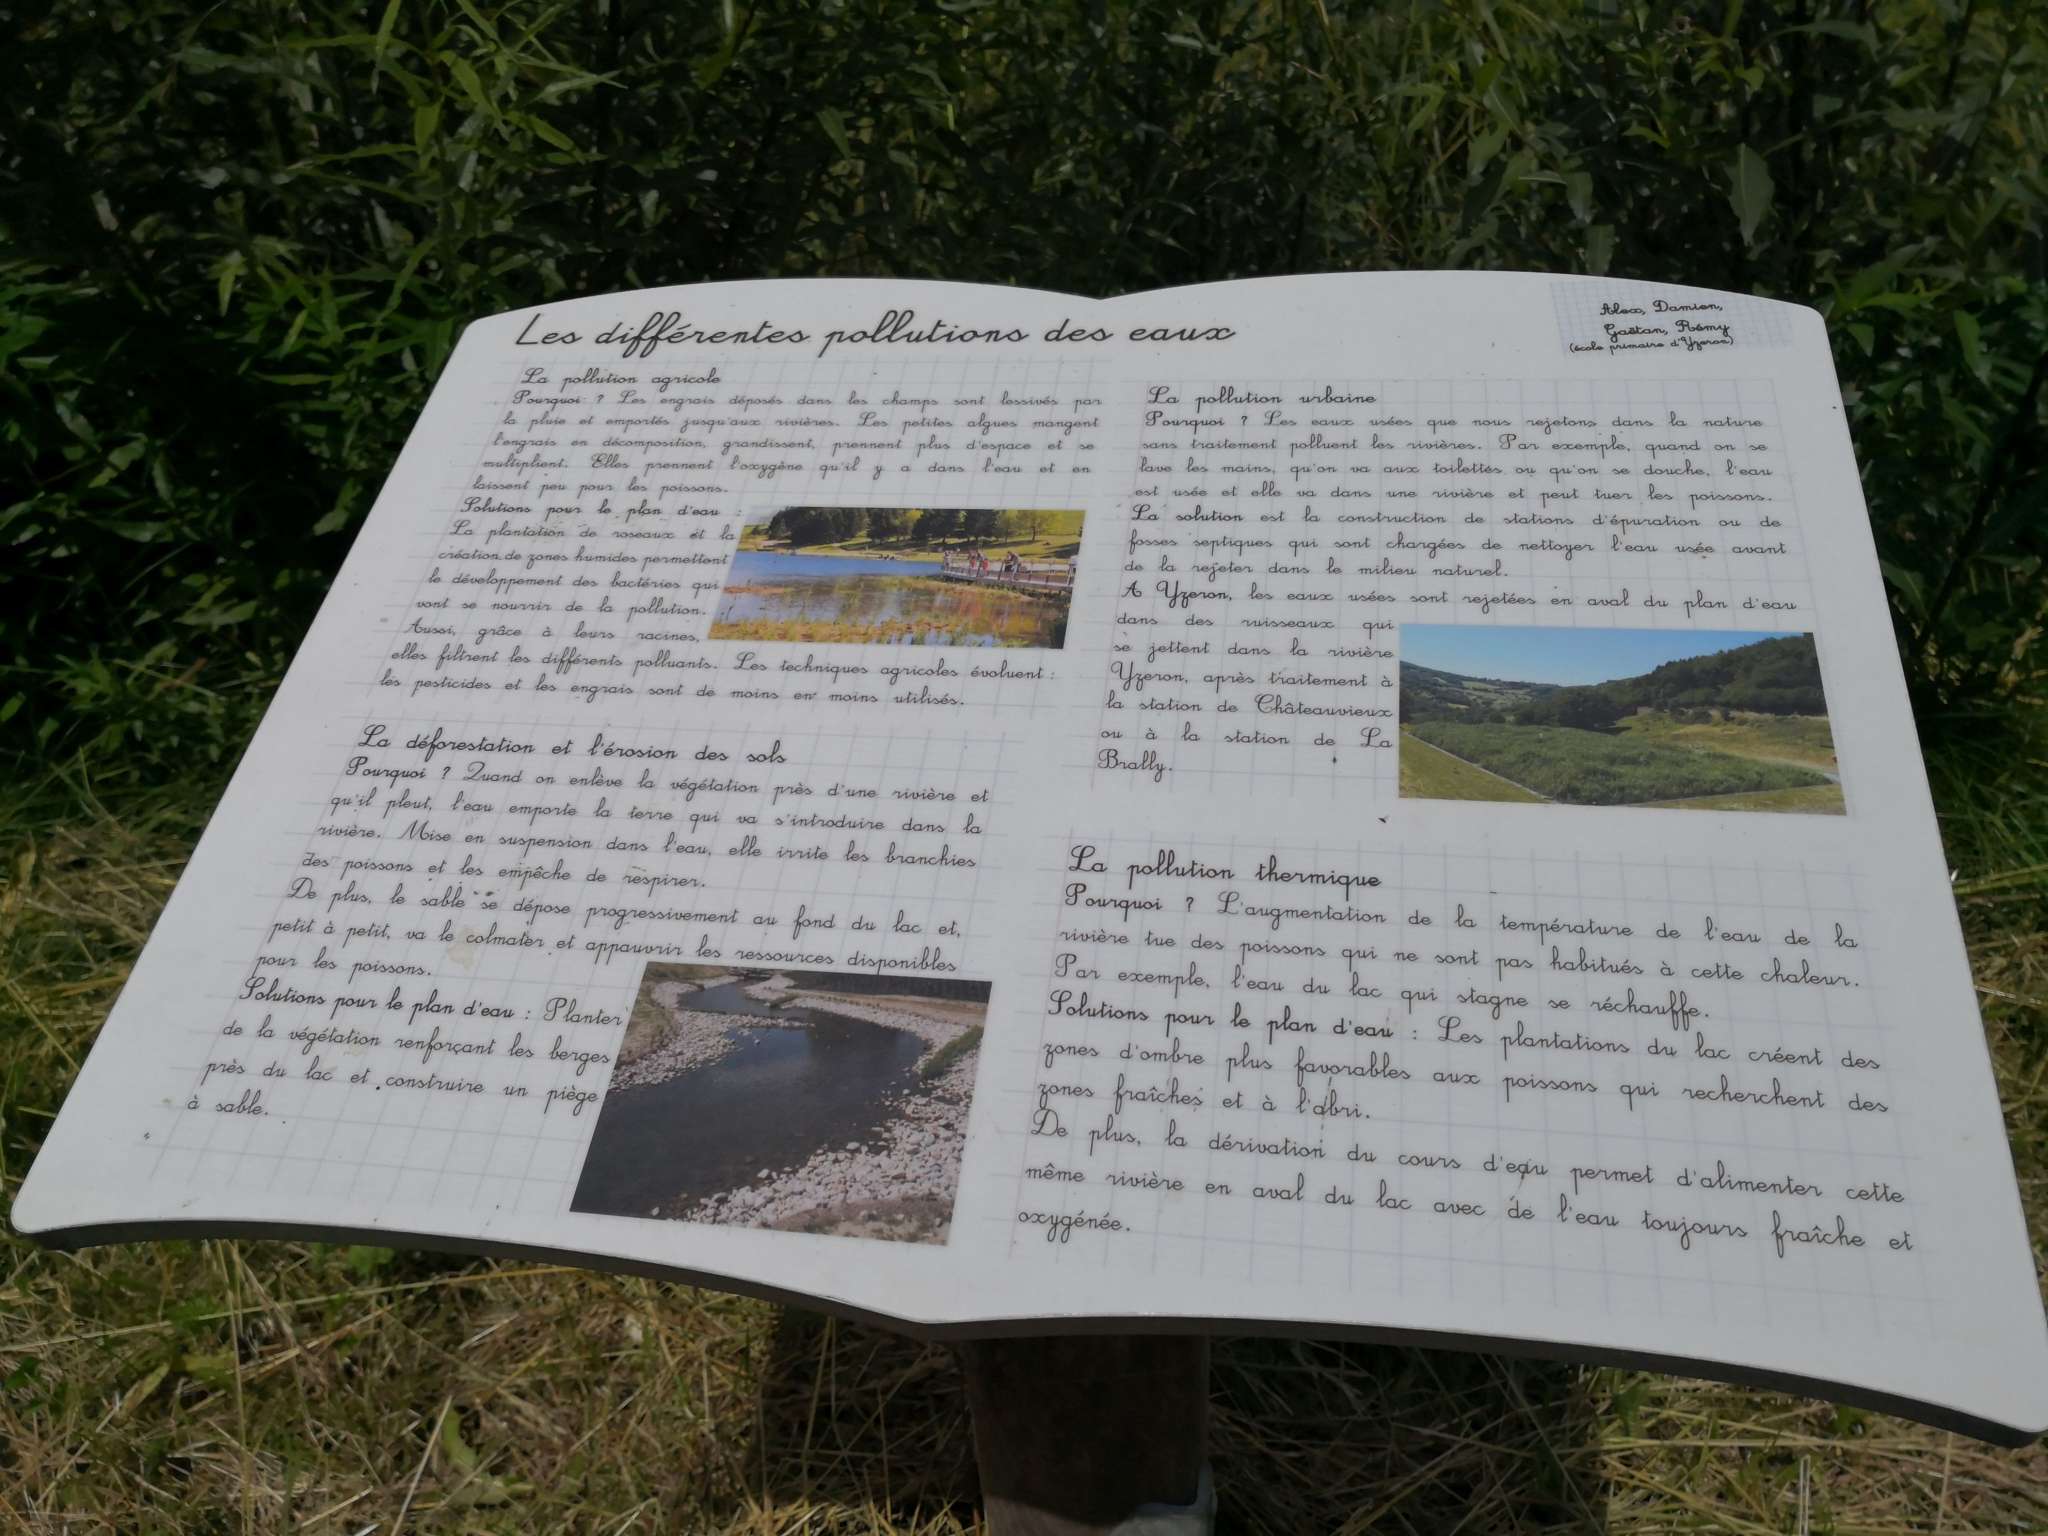 Les différentes pollutions des eaux
Alex, Damien,
Gaëtan, Rémy
(école primaire d'Yzeron)
La pollution agricole
Pourquoi ? Les engrais déposés dans les champs sont lessivés par
la pluie et emportés jusqu'aux rivières. Les petites algues mangent
l'engrais en décomposition, grandissent, prennent plus d'espace et se
multiplient. Elles prennent l'oxygène qu'il y a dans l'eau et en
laissent peu pour les poissons.
Solutions pour le plan d'eau :
La plantation de roseaux et la
création de zones humides permettent
le développement des bactéries qui
vont se nourrir de la pollution.
Aussi, grâce à leurs racines,
elles filtrent les différents polluants. Les techniques agricoles évoluent :
les pesticides et les engrais sont de moins en moins utilisés.
La déforestation et l'érosion des sols
Pourquoi ? Quand on enlève la végétation près d'une rivière et
qu'il pleut, l'eau emporte la terre qui va s'introduire dans la
rivière. Mise en suspension dans l'eau, elle irrite les branchies
des poissons et les empêche de respirer.
De plus, le sable se dépose progressivement au fond du lac et,
petit à petit, va le colmater et appauvrir les ressources disponibles
pour les poissons.
Solutions pour le plan d'eau : Planter
de la végétation renforçant les berges
près du lac et construire un piège
à sable.
La pollution urbaine
Pourquoi ? Les eaux usées que nous rejetons dans la nature
sans traitement polluent les rivières. Par exemple, quand on se
lave les mains, qu'on va aux toilettes ou qu'on se douche, l'eau
est usée et elle va dans une rivière et peut tuer les poissons.
La solution est la construction de stations d'épuration ou de
fosses septiques qui sont chargées de nettoyer l'eau usée avant
de la rejeter dans le milieu naturel.
A Yzeron, les eaux usées sont rejetées en aval du plan d'eau
dans des ruisseaux qui
se jettent dans la rivière
Yzeron, après traitement à
la station de Châteauvieux
ou à la station de La
Brally.
La pollution thermique
Pourquoi ? L'augmentation de la température de l'eau de la
rivière tue des poissons qui ne sont pas habitués à cette chaleur.
Par exemple, l'eau du lac qui stagne se réchauffe.
Solutions pour le plan d'eau : Les plantations du lac créent des
zones d'ombre plus favorables aux poissons qui recherchent des
zones fraîches et à l'abri.
De plus, la dérivation du cours d'eau permet d'alimenter cette
même rivière en aval du lac avec de l'eau toujours fraîche et
oxygénée.